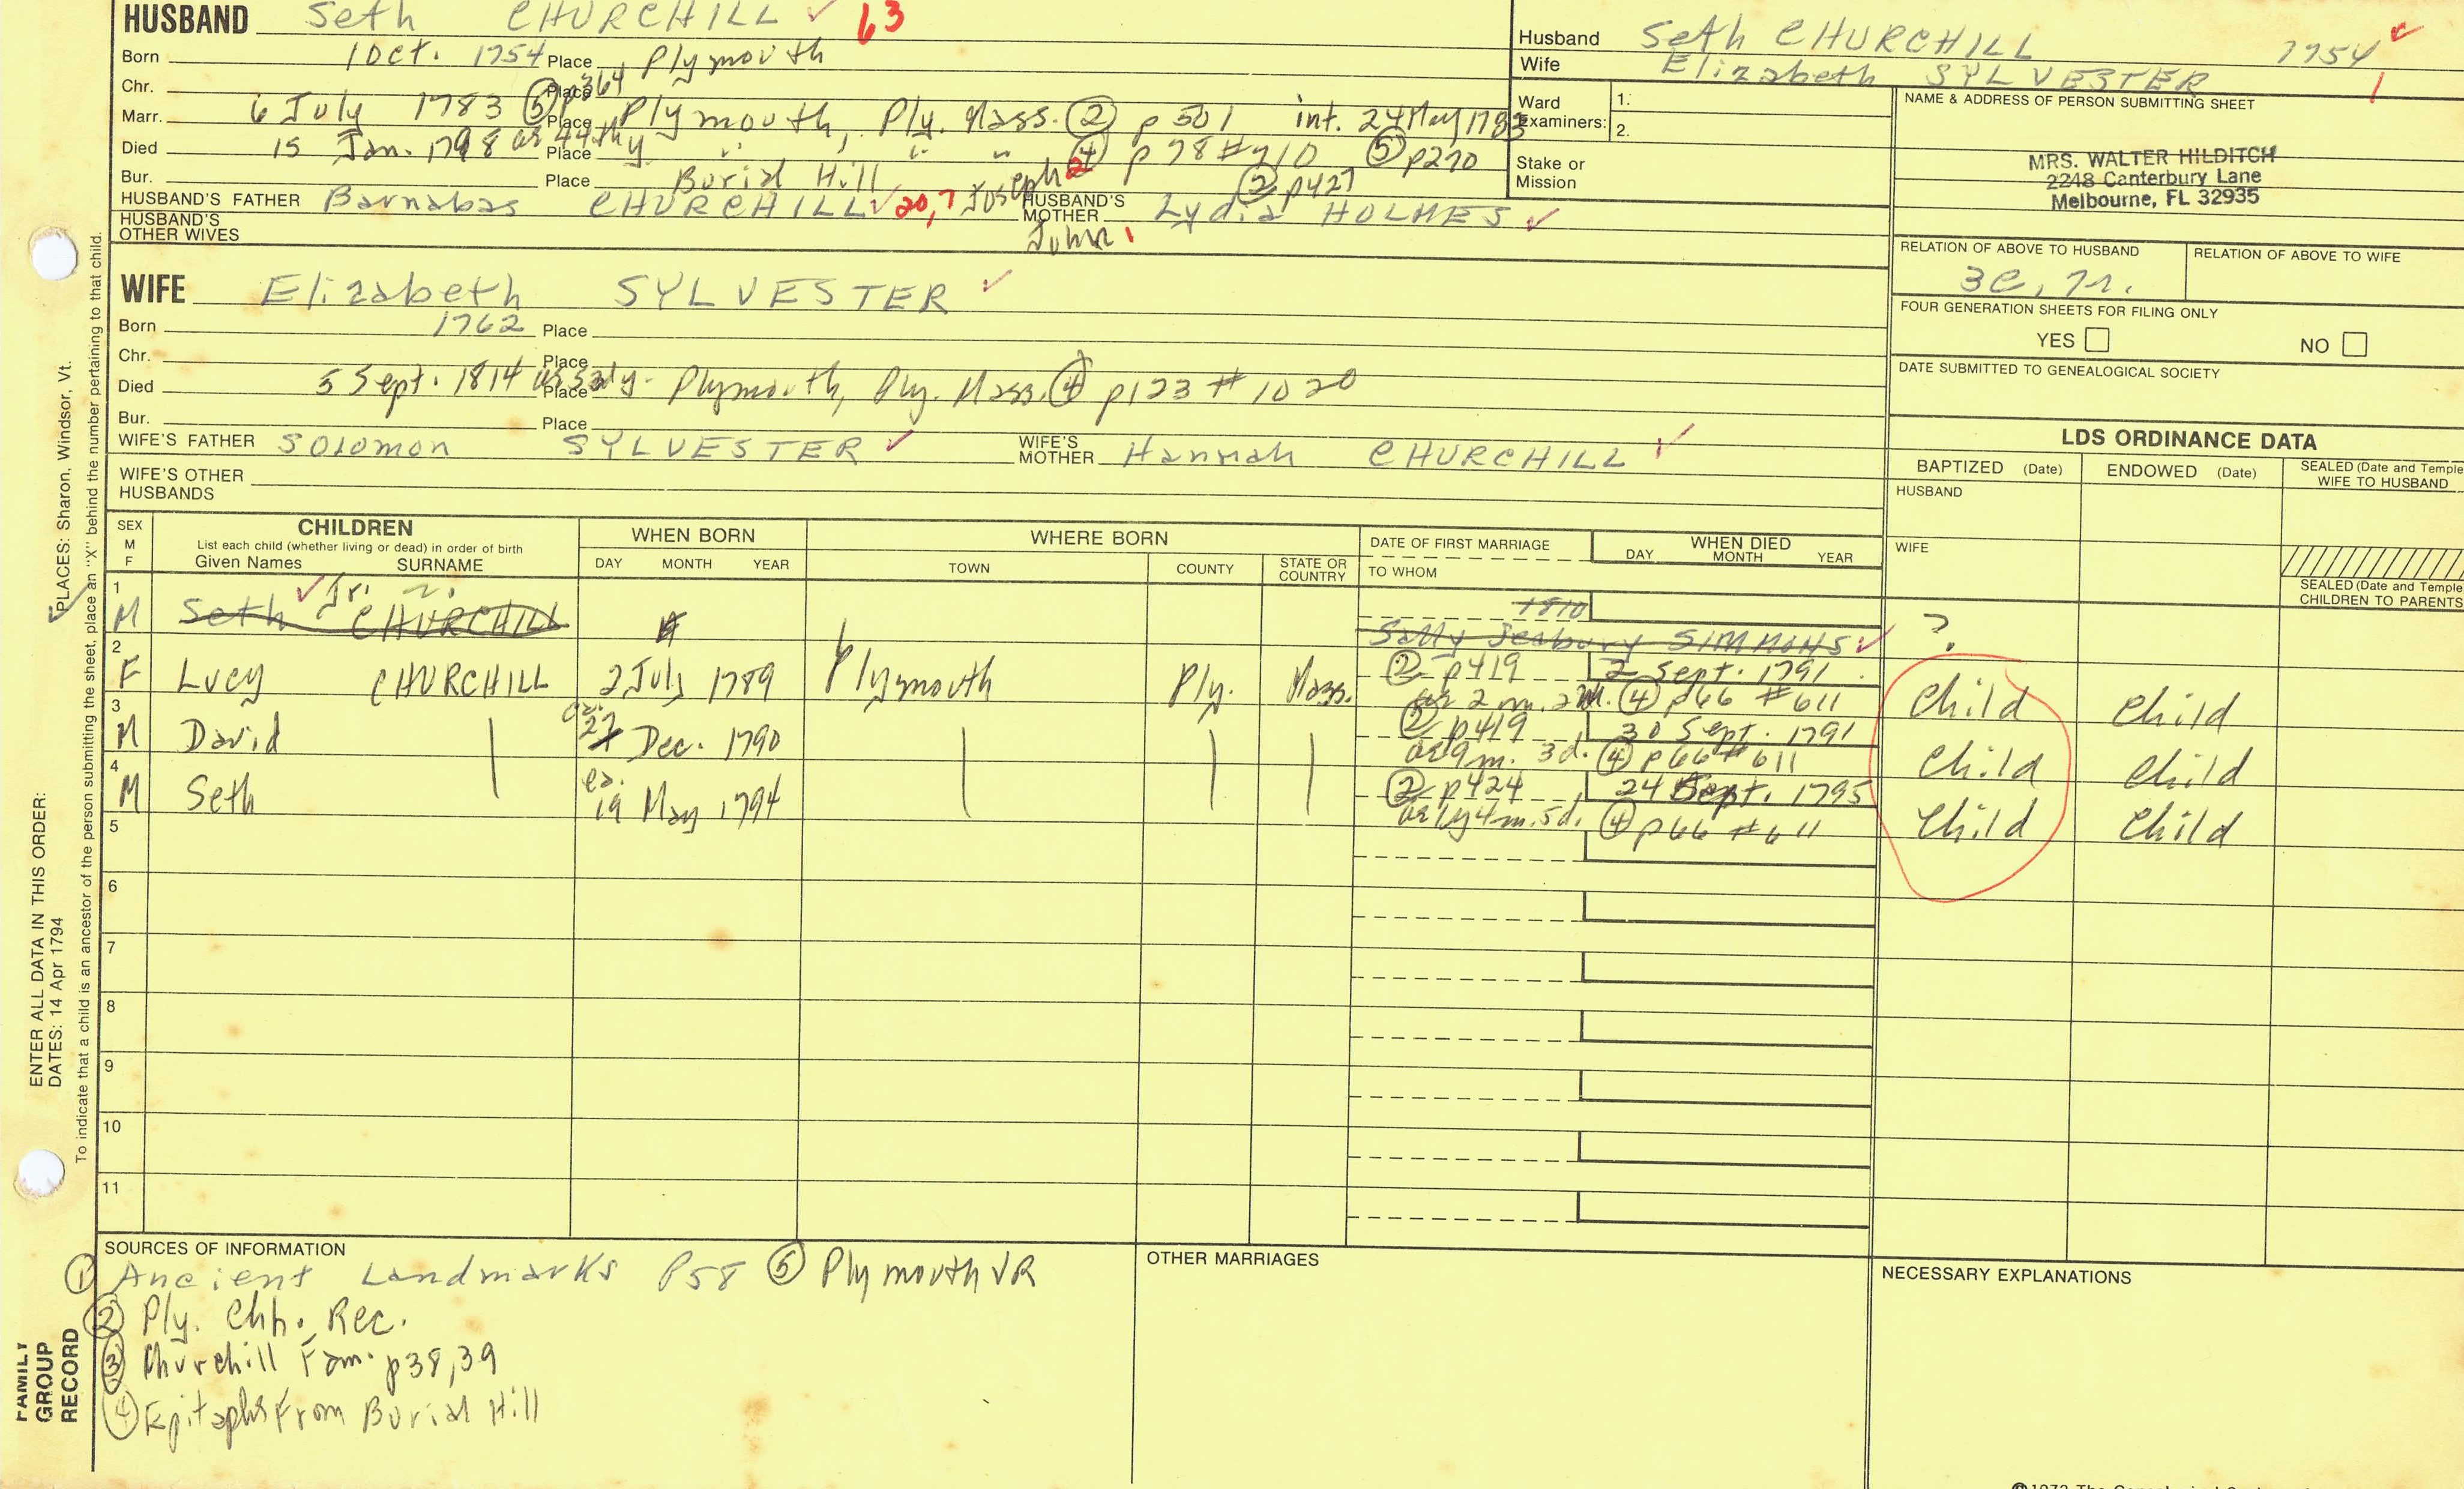 HUSBAND Seth CHURCHILL ✓ 63
Born 1 Oct. 1754 Place Plymouth
Chr. Place
Marr. 6 July 1783 ⑤ p364 Place Plymouth, Ply. Mass. ② p 501 int. 24 May 1783
Died 15 Jan. 1798 Place " " " ④ p 78 # 710 ⑤ p270
Bur. Place Burial Hill ② p427
HUSBAND'S FATHER Barnabas CHURCHILL ✓ 20,7 Joseph 2 HUSBAND'S MOTHER Lydia HOLMES ✓
HUSBAND'S OTHER WIVES John 1
Husband Seth CHURCHILL 1754
Wife Elizabeth SYLVESTER 1
Ward Examiners: 1.
2.
Stake or Mission
NAME & ADDRESS OF PERSON SUBMITTING SHEET
MRS. WALTER HILDITCH
2248 Canterbury Lane
Melbourne, FL 32935
RELATION OF ABOVE TO HUSBAND
RELATION OF ABOVE TO WIFE
3C, 7r.
FOUR GENERATION SHEETS FOR FILING ONLY
YES NO
DATE SUBMITTED TO GENEALOGICAL SOCIETY
WIFE Elizabeth SYLVESTER ✓
Born 1762 Place
Chr. Place
Died 5 Sept. 1814 Place Plymouth, Ply. Mass. ④ p123 # 1020
Bur. Place
WIFE'S FATHER Solomon SYLVESTER ✓ WIFE'S MOTHER Hannah CHURCHILL ✓
WIFE'S OTHER HUSBANDS
LDS ORDINANCE DATA
BAPTIZED (Date) ENDOWED (Date) SEALED (Date and Temple
WIFE TO HUSBAND
HUSBAND
WIFE
SEALED (Date and Temple
CHILDREN TO PARENTS
SEX M F
CHILDREN
List each child (whether living or dead) in order of birth
Given Names SURNAME
WHEN BORN
DAY MONTH YEAR
WHERE BORN
TOWN COUNTY STATE OR COUNTRY
DATE OF FIRST MARRIAGE
TO WHOM
WHEN DIED
DAY MONTH YEAR
1 M Seth Jr. CHURCHILL 1810
Sally Seabury SIMMONS ✓ ?
2 F Lucy CHURCHILL 2 July 1789 Plymouth Ply. Mass. ② p419 2 Sept. 1791
④ p66 # 611 Child Child
3 M David ca. 27 Dec. 1790 ② p419 30 Sept. 1791
ae 9 m. 3 d. ④ p66 # 611 Child Child
4 M Seth ca. 19 May 1794 ② p424 24 Sept. 1795
ae 1y 4 m. 5 d. ④ p66 # 611 Child Child
5
6
7
8
9
10
11
SOURCES OF INFORMATION
① Ancient Landmarks P58 ⑤ Plymouth VR
② Ply. Chh. Rec.
③ Churchill Fam. p38,39
④ Epitaphs From Burial Hill
OTHER MARRIAGES
NECESSARY EXPLANATIONS
FAMILY GROUP RECORD
ENTER ALL DATA IN THIS ORDER:
DATES: 14 Apr 1794
PLACES: Sharon, Windsor, Vt.
To indicate that a child is an ancestor of the person submitting the sheet, place an "X" behind the number pertaining to that child.